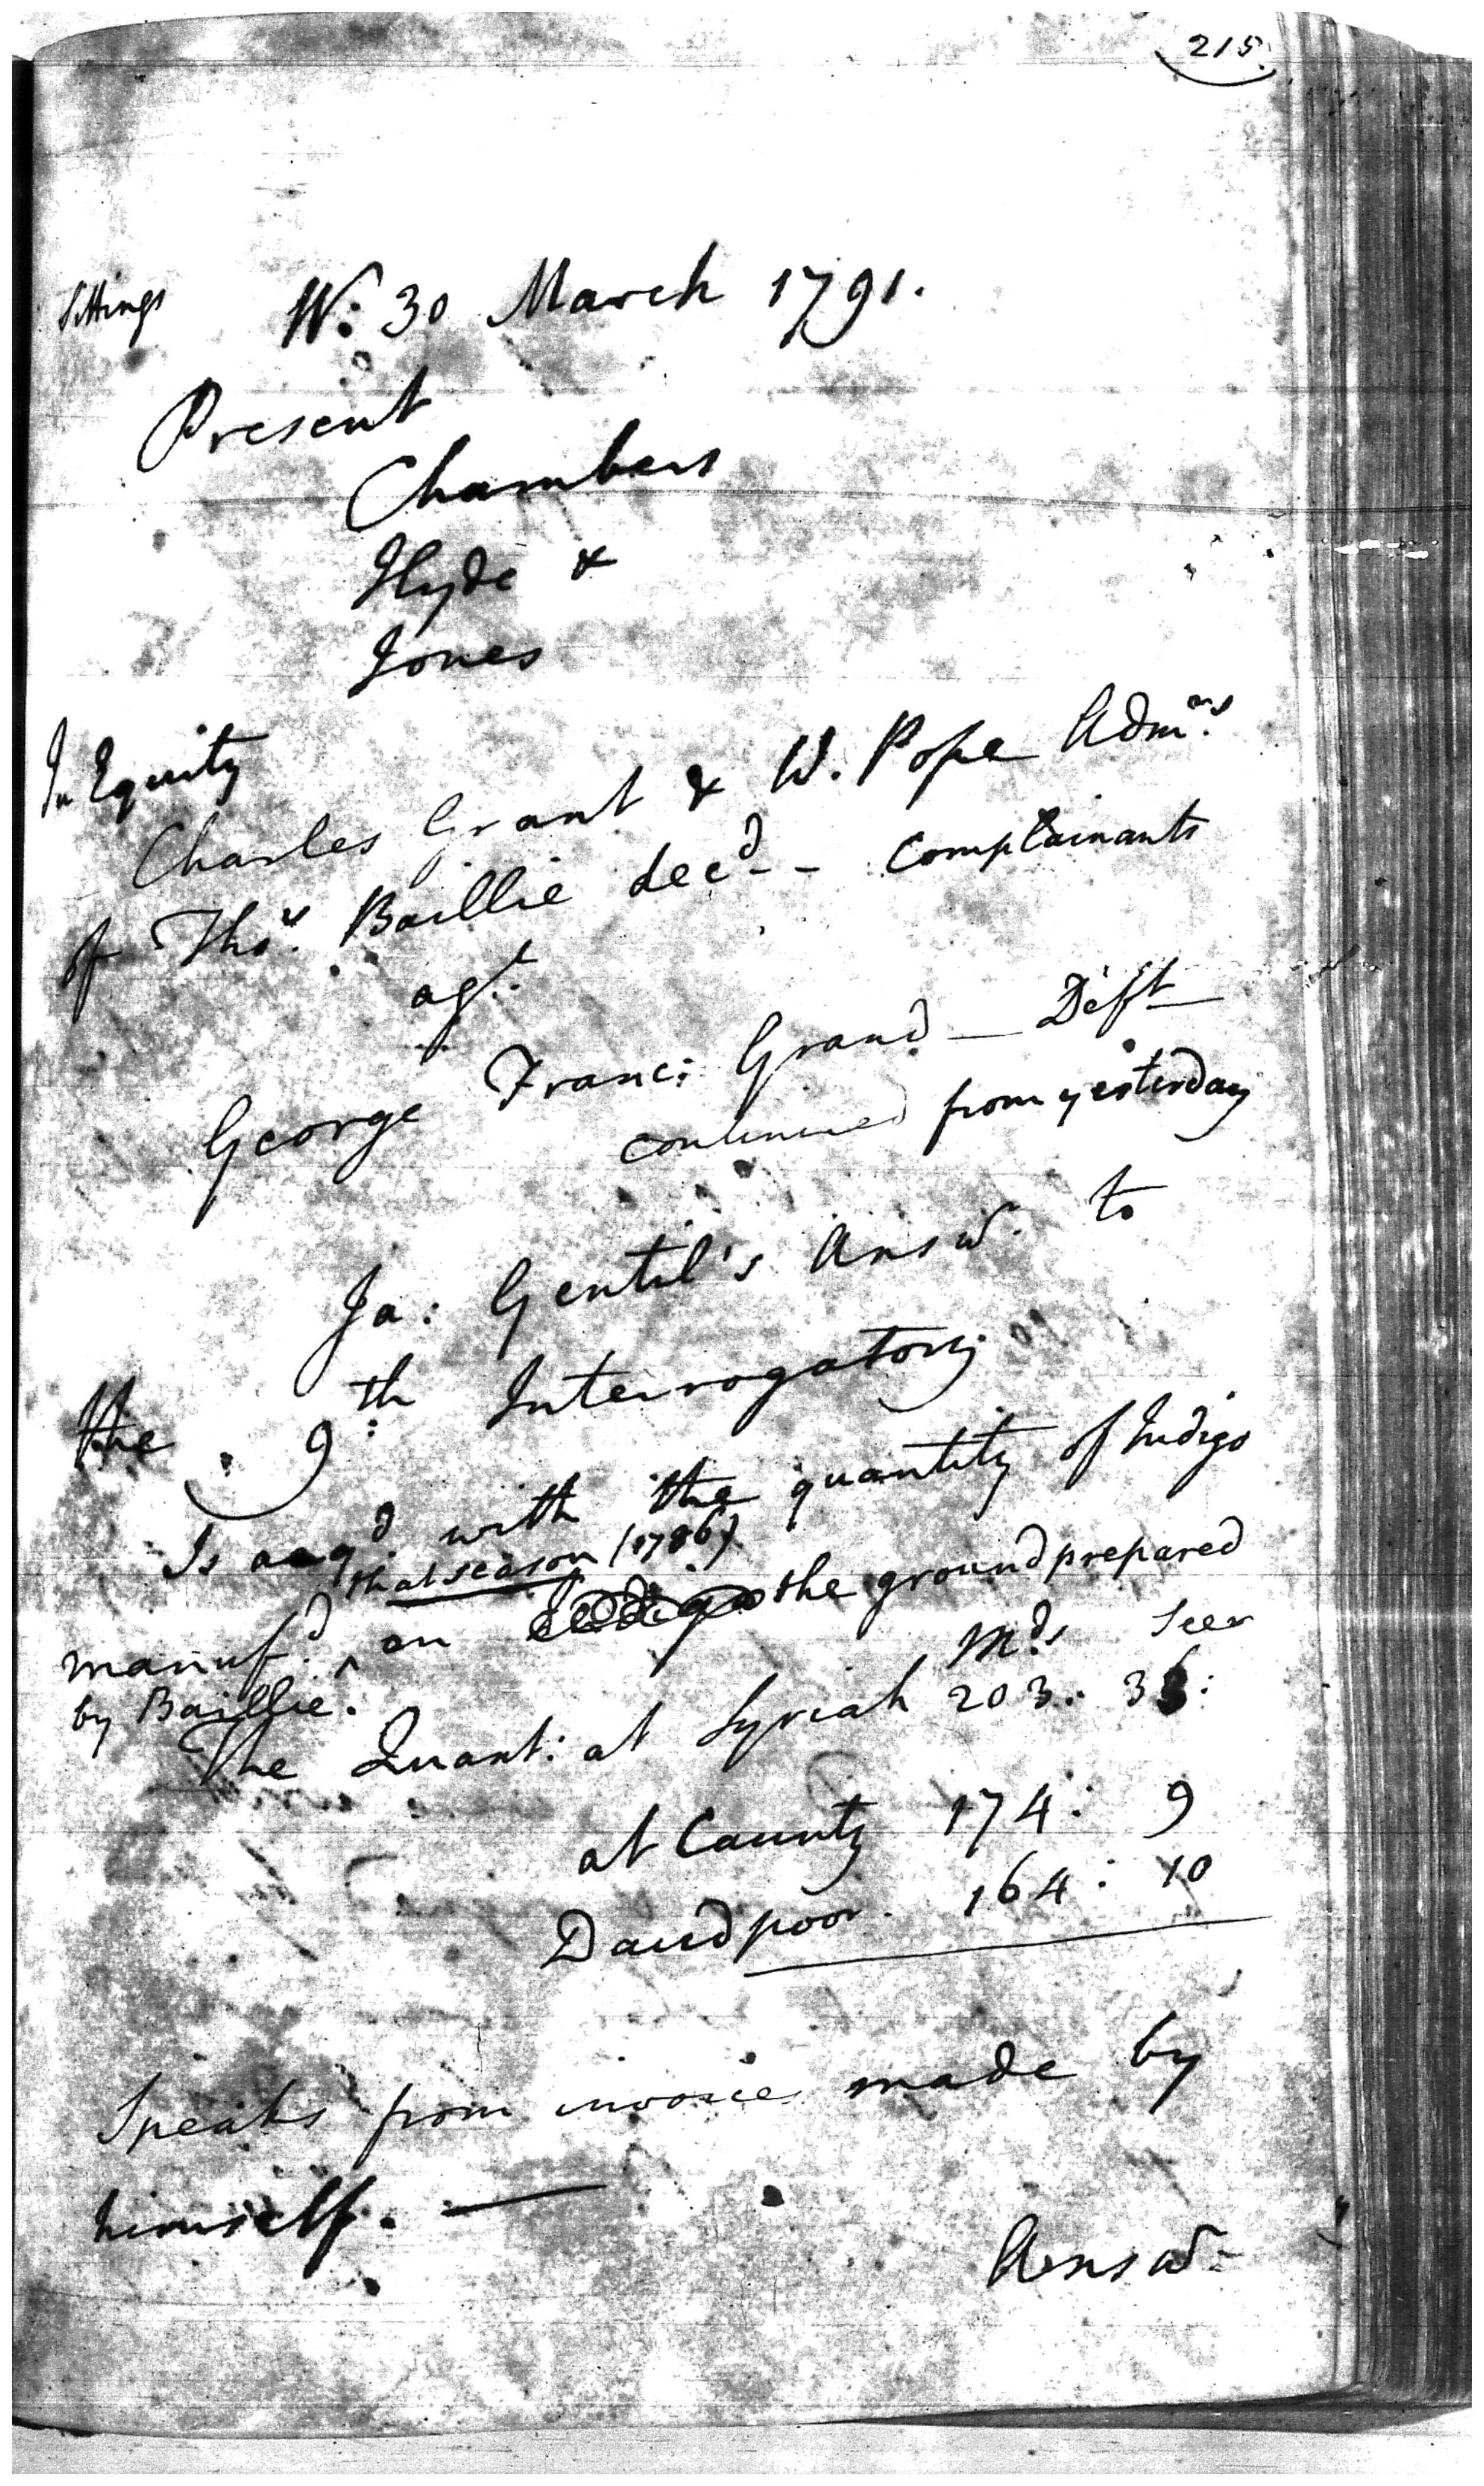 215
Sittings W: 30 March 1791.
Present
Chambers
Hyde &
Jones
In Equity
Charles Grant & W. Pope Admrs.
of Thos. Baillie decd - - Complainants
agt.
George Franc: Grand — Deft
continued from yesterday
Ja: Gentil's Answ. to
the 9:th Interrogatory
Is acqd. with the quantity of Indigo
that season (1786)
manufd. on the ground prepared
by Baillie.
Mds Seer
The Quant: at Syriah 203:
at Caunty 174: 9
Daudpoor. 164: 10
Speaks from invoices made by
himself. —
Answ: